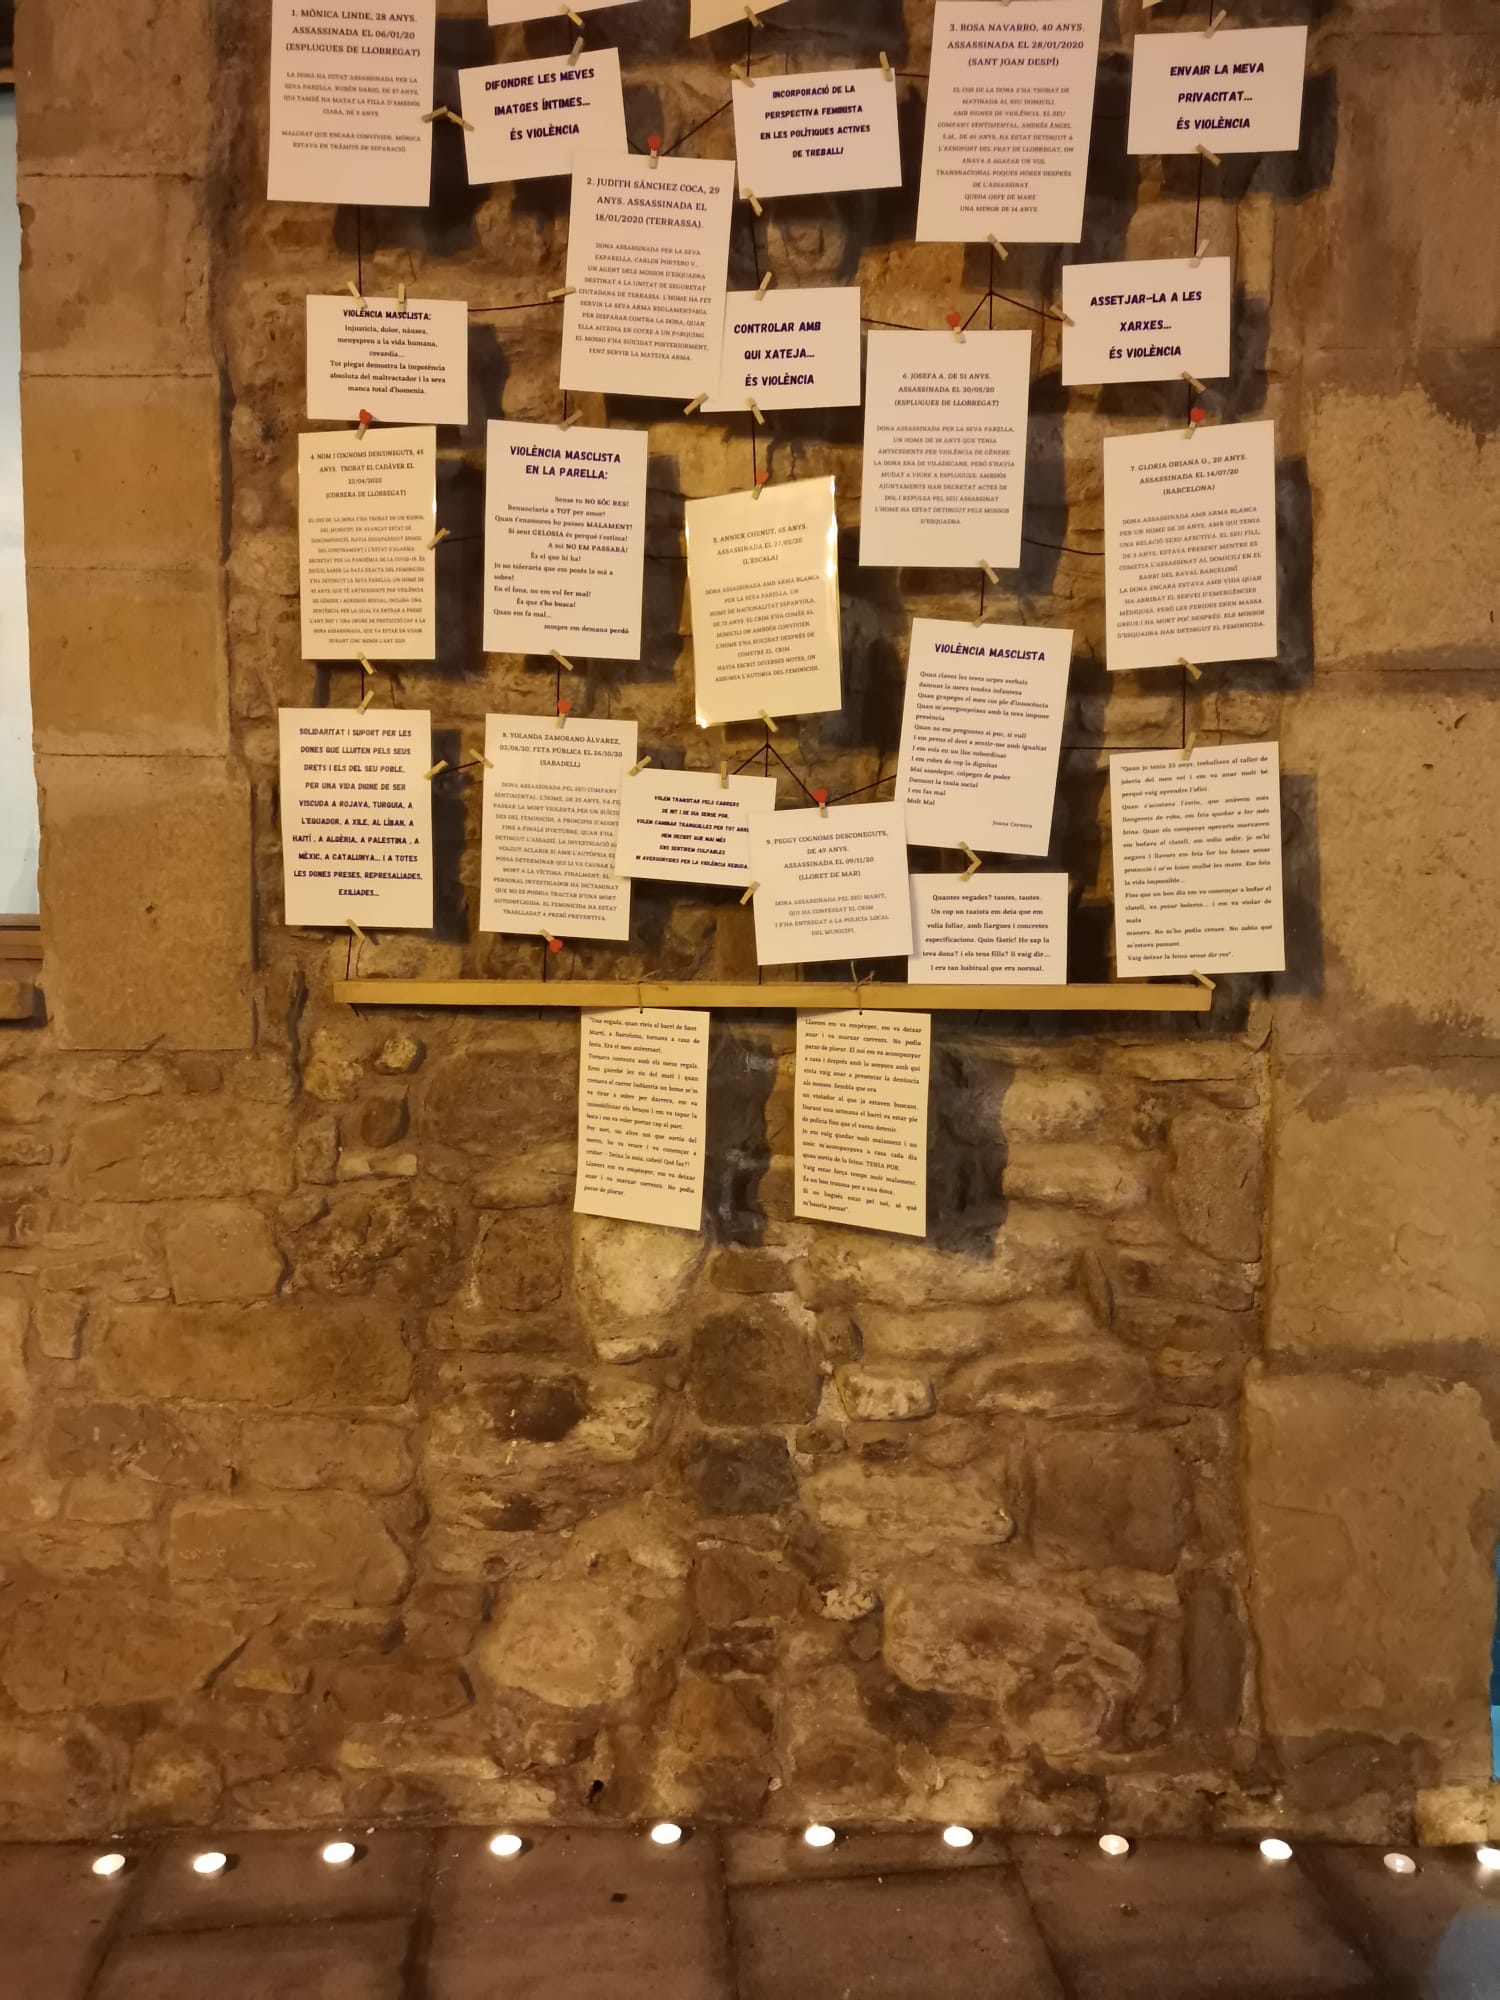 1. MÒNICA LINDE, 28 ANYS.
ASSASSINADA EL 06/01/20
(ESPLUGUES DE LLOBREGAT)
LA DONA HA ESTAT ASSASSINADA PER LA
SEVA PARELLA, RUBÉN DARIO, DE 27 ANYS,
QUI TAMBÉ HA MATAT LA FILLA D'AMBDÓS
CIARA, DE 3 ANYS.
MALGRAT QUE ENCARA CONVIVIEN, MÒNICA
ESTAVA EN TRÀMITS DE SEPARACIÓ.
DIFONDRE LES MEVES
IMATGES ÍNTIMES...
ÉS VIOLÈNCIA
INCORPORACIÓ DE LA
PERSPECTIVA FEMINISTA
EN LES POLÍTIQUES ACTIVES
DE TREBALL!
3. ROSA NAVARRO, 40 ANYS.
ASSASSINADA EL 28/01/2020
(SANT JOAN DESPÍ)
EL COS DE LA DONA S'HA TROBAT DE
MATINADA AL SEU DOMICILI,
AMB SIGNES DE VIOLÈNCIA. EL SEU
COMPANY SENTIMENTAL, ANDRÉS ÀNGEL
S.M., DE 45 ANYS, HA ESTAT DETINGUT A
L'AEROPORT DEL PRAT DE LLOBREGAT, ON
ANAVA A AGAFAR UN VOL
TRANSNACIONAL POQUES HORES DESPRÉS
DE L'ASSASSINAT.
QUEDA ORFE DE MARE
UNA MENOR DE 14 ANYS.
ENVAIR LA MEVA
PRIVACITAT...
ÉS VIOLÈNCIA
2. JUDITH SÁNCHEZ COCA, 29
ANYS. ASSASSINADA EL
18/01/2020 (TERRASSA).
DONA ASSASSINADA PER LA SEVA
EXPARELLA, CARLOS PORTERO V.,
UN AGENT DELS MOSSOS D'ESQUADRA
DESTINAT A LA UNITAT DE SEGURETAT
CIUTADANA DE TERRASSA. L'HOME HA FET
SERVIR LA SEVA ARMA REGLAMENTÀRIA
PER DISPARAR CONTRA LA DONA, QUAN
ELLA ACCEDIA EN COTXE A UN PÀRQUING.
EL MOSSO S'HA SUICIDAT POSTERIORMENT,
FENT SERVIR LA MATEIXA ARMA.
VIOLÈNCIA MASCLISTA:
Injustícia, dolor, nàusea,
menyspreu a la vida humana,
covardia...
Tot plegat demostra la impotència
absoluta del maltractador i la seva
manca total d'homenia.
CONTROLAR AMB
QUI XATEJA...
ÉS VIOLÈNCIA
ASSETJAR-LA A LES
XARXES...
ÉS VIOLÈNCIA
6. JOSEFA A. DE 51 ANYS.
ASSASSINADA EL 30/05/20
(ESPLUGUES DE LLOBREGAT)
DONA ASSASSINADA PER LA SEVA PARELLA,
UN HOME DE 38 ANYS QUE TENIA
ANTECEDENTS PER VIOLÈNCIA DE GÈNERE.
LA DONA ERA DE VILADECANS, PERÒ S'HAVIA
MUDAT A VIURE A ESPLUGUES; AMBDÓS
AJUNTAMENTS HAN DECRETAT ACTES DE
DOL I REPULSA PEL SEU ASSASSINAT
L'HOME HA ESTAT DETINGUT PELS MOSSOS
D'ESQUADRA.
4. NOM I COGNOMS DESCONEGUTS, 45
ANYS. TROBAT EL CADÀVER EL
22/04/2020
(CORBERA DE LLOBREGAT)
EL COS DE LA DONA S'HA TROBAT EN UN
DEL MUNICIPI, EN AVANÇAT ESTAT DE
DESCOMPOSICIÓ. HAVIA DESAPAREGUT ENMIG
DEL CONFINAMENT I L'ESTAT D'ALARMA
DECRETAT PER LA PANDÈMIA DE LA COVID-19. ÉS
DIFÍCIL SABER LA DATA EXACTA DEL FEMINICIDI.
S'HA DETINGUT LA SEVA PARELLA, UN HOME DE
ANYS QUE TÉ ANTECEDENTS PER VIOLÈNCIA
DE GÈNERE I AGRESSIÓ SEXUAL, INCLOSA UNA
SENTÈNCIA PER LA QUAL VA ENTRAR A PRESÓ
L'ANY 2017 I UNA ORDRE DE PROTECCIÓ CAP A LA
DONA ASSASSINADA, QUE VA ESTAR EN VIGOR
DURANT CINC MESOS L'ANY 2019.
VIOLÈNCIA MASCLISTA
EN LA PARELLA:
Sense tu NO SÓC RES!
Renunciaria a TOT per amor!
Quan t'enamores ho passes MALAMENT!
Si sent GELOSIA és perquè t'estima!
A mi NO EM PASSARÀ!
És el que hi ha!
Jo no toleraria que em posés la mà a
sobre!
En el fons, no em vol fer mal!
És que s'ho busca!
Quan em fa mal...
sempre em demana perdó
5. ANNICK CHENUT, 65 ANYS.
ASSASSINADA EL 27/05/20
(L'ESCALA)
DONA ASSASSINADA AMB ARMA BLANCA
PER LA SEVA PARELLA, UN
HOME DE NACIONALITAT ESPANYOLA,
DE 75 ANYS. EL CRIM S'HA COMÈS AL
DOMICILI ON AMBDÓS CONVIVIEN.
L'HOME S'HA SUICIDAT DESPRÉS DE
COMETRE EL CRIM
HAVIA ESCRIT DIVERSES NOTES, ON
ASSUMIA L'AUTORIA DEL FEMINICIDI.
7. GLORIA ORIANA O., 20 ANYS.
ASSASSINADA EL 14/07/20
(BARCELONA)
DONA ASSASSINADA AMB ARMA BLANCA
PER UN HOME DE 35 ANYS, AMB QUI TENIA
UNA RELACIÓ SEXO AFECTIVA. EL SEU FILL,
DE 3 ANYS, ESTAVA PRESENT MENTRE ES
COMETIA L'ASSASSINAT AL DOMICILI EN EL
BARRI DEL RAVAL BARCELONÍ.
LA DONA ENCARA ESTAVA AMB VIDA QUAN
HA ARRIBAT EL SERVEI D'EMERGÈNCIES
MÈDIQUES, PERÒ LES FERIDES EREN MASSA
GREUS I HA MORT POC DESPRÉS. ELS MOSSOS
D'ESQUADRA HAN DETINGUT EL FEMINICIDA.
VIOLÈNCIA MASCLISTA
Quan claves les teves urpes verbals
damunt la meva tendra infantesa
Quan grapeges el meu cos ple d'innocència
Quan m'avergonyeixes amb la teva impune
presència
Quan no em preguntes si puc, si vull
I em prens el dret a sentir-me amb igualtat
I em vols en un lloc subordinat
I em robes de cop la dignitat
Mal assedegat, colpeges de poder
Damunt la taula social
I em fas mal
Molt Mal
Joana Cervera
SOLIDARITAT I SUPORT PER LES
DONES QUE LLUITEN PELS SEUS
DRETS I ELS DEL SEU POBLE,
PER UNA VIDA DIGNE DE SER
VISCUDA A ROJAVA, TURQUIA, A
L'EQUADOR, A XILE, AL LÍBAN, A
HAITÍ , A ALGÈRIA, A PALESTINA , A
MÈXIC, A CATALUNYA... I A TOTES
LES DONES PRESES, REPRESALIADES,
EXILIADES...
8. YOLANDA ZAMORANO ÁLVAREZ,
02/08/20, FETA PÚBLICA EL 26/10/20
(SABADELL)
DONA ASSASSINADA PEL SEU COMPANY
SENTIMENTAL. L'HOME, DE 25 ANYS, VA FER
PASSAR LA MORT VIOLENTA PER UN SUÏCIDI
DES DEL FEMINICIDI, A PRINCIPIS D'AGOST
FINS A FINALS D'OCTUBRE, QUAN S'HA
DETINGUT L'ASSASSÍ, LA INVESTIGACIÓ
VOLGUT ACLARIR SI AMB L'AUTÒPSIA ES
PODIA DETERMINAR QUI LI VA CAUSAR LA
MORT A LA VÍCTIMA. FINALMENT, EL
PERSONAL INVESTIGADOR HA DICTAMINAT
QUE NO ES PODRIA TRACTAR D'UNA MORT
AUTOINFLIGIDA. EL FEMINICIDA HA ESTAT
TRASLLADAT A PRESÓ PREVENTIVA.
VOLEM TRANSITAR PELS CARRERS
DE NIT I DE DIA SENSE POR.
VOLEM CAMINAR TRANQUIL·LES PER TOT ARREU
HEM DECIDIT QUE MAI MÉS
ENS SENTIREM CULPABLES
NI AVERGONYIDES PER LA VIOLÈNCIA REBUDA.
"Quan jo tenia 23 anys, treballava al taller de
joieria del meu veí i em va anar molt bé
perquè vaig aprendre l'ofici.
Quan s'acostava l'estiu, que anàvem més
lleugerets de roba, em feia quedar a fer més
feina. Quan els companys operaris marxaven
em bufava el clatell, em volia seduir, jo m'hi
negava i llavors em feia fer les feines sense
protecció i se'm feien malbé les mans. Em feia
la vida impossible...
Fins que un bon dia em va començar a bufar el
clatell, va posar boleros... i em va violar de
mala
manera. No m'ho podia creure. No sabia què
m'estava passant.
Vaig deixar la feina sense dir res".
9. PEGGY COGNOMS DESCONEGUTS,
DE 49 ANYS.
ASSASSINADA EL 09/11/20
(LLORET DE MAR)
DONA ASSASSINADA PEL SEU MARIT,
QUI HA CONFESSAT EL CRIM
I S'HA ENTREGAT A LA POLICIA LOCAL
DEL MUNICIPI.
Quantes vegades? tantes, tantes.
Un cop un taxista em deia que em
volia follar, amb llargues i concretes
especificacions. Quin fàstic! Ho sap la
teva dona? i els teus fills? li vaig dir...
I era tan habitual que era normal.
"Una vegada, quan vivia al barri de Sant
Martí, a Barcelona, tornava a casa de
festa. Era el meu aniversari.
Tornava contenta amb els meus regals.
Eren gairebé les sis del matí i quan
creuava el carrer Indústria un home se'm
va tirar a sobre per darrera, em va
immobilitzar els braços i em va tapar la
boca i em va voler portar cap al parc.
Per sort, un altre noi que sortia del
metro, ho va veure i va començar a
cridar: - Deixa la noia, cabró! Què fas?!
Llavors em va empènyer, em va deixar
anar i va marxar corrents. No podia
parar de plorar.
Llavors em va empènyer, em va deixar
anar i va marxar corrents. No podia
parar de plorar. El noi em va acompanyar
a casa i després amb la senyora amb qui
vivia vaig anar a presentar la denúncia
als mossos. Sembla que era
un violador al que ja estaven buscant.
Durant una setmana el barri va estar ple
de policia fins que el varen detenir.
Jo em vaig quedar molt malament i un
amic m'acompanyava a casa cada dia
quan sortia de la feina: TENIA POR.
Vaig estar força temps molt malament.
És un bon trauma per a una dona.
Si no hagués estat pel noi, sé què
m'hauria passat".